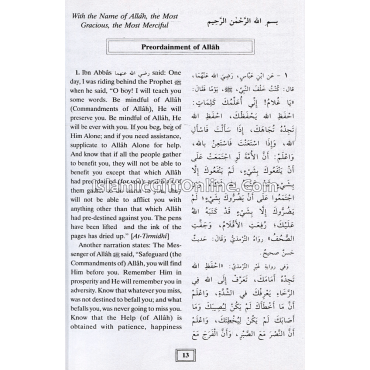 With the Name of Allâh, the Most
Gracious, the Most Merciful
بسم الله الرَّحْمٰنِ الرَّحِيمِ
Preordainment of Allâh
1. Ibn Abbâs رضي الله عنهما said: One
day, I was riding behind the Prophet ﷺ
when he said, “O boy! I will teach you
some words. Be mindful of Allâh
(Commandments of Allâh), He will
preserve you. Be mindful of Allâh, He
will be ever with you. If you beg, beg of
Him Alone; and if you need assistance,
supplicate to Allâh Alone for help.
And know that if all the people gather
to benefit you, they will not be able to
benefit you except that which Allâh
had
them
will not be able to afflict you with
anything other than that which Allâh
had pre-destined against you. The pens
have been lifted and the ink of the
pages has dried up.” [At-Tirmidhi]
Another narration states: The Mes-
senger of Allâh ﷺ said, “Safeguard (the
Commandments of) Allâh, you will find
Him before you. Remember Him in
prosperity and He will remember you in
adversity. Know that whatever you miss,
was not destined to befall you; and what
befalls you, was never going to miss you.
Know that the Help (of Allâh) is
obtained with patience, happiness
١ - عَنِ ابْنِ عَبَّاسٍ، رَضِيَ اللهُ عَنْهُمَا،
قَالَ: كُنْتُ خَلْفَ النَّبِيِّ، ﷺ، يَوْمًا فَقَالَ:
«يَا غُلَامُ! إِنِّي أُعَلِّمُكَ كَلِمَاتٍ:
احْفَظِ اللهَ يَحْفَظْكَ، احْفَظِ اللهَ
تَجِدْهُ تُجَاهَكَ، إِذَا سَأَلْتَ فَاسْأَلِ
اللهَ، وَإِذَا اسْتَعَنْتَ فَاسْتَعِنْ بِاللهِ،
وَاعْلَمْ: أَنَّ الْأُمَّةَ لَوِ اجْتَمَعَتْ عَلَى
أَنْ يَنْفَعُوكَ بِشَيْءٍ، لَمْ يَنْفَعُوكَ إِلَّا
بِشَيْءٍ
اجْتَمَعُوا عَلَى أَنْ يَضُرُّوكَ بِشَيْءٍ، لَمْ
يَضُرُّوكَ إِلَّا بِشَيْءٍ قَدْ كَتَبَهُ اللهُ
عَلَيْكَ؛ رُفِعَتِ الْأَقْلَامُ، وَجَفَّتِ
الصُّحُفُ» رَوَاهُ التِّرْمِذِيُّ وَقَالَ: حَدِيثٌ
حَسَنٌ صَحِيحٌ.
وَفِي رِوَايَةِ غَيْرِ التِّرْمِذِيِّ: «احْفَظِ اللهَ
تَجِدْهُ أَمَامَكَ، تَعَرَّفْ إِلَى اللهِ فِي
الرَّخَاءِ يَعْرِفْكَ فِي الشِّدَّةِ، وَاعْلَمْ
أَنَّ مَا أَخْطَأَكَ لَمْ يَكُنْ لِيُصِيبَكَ، وَمَا
أَصَابَكَ لَمْ يَكُنْ لِيُخْطِئَكَ، وَاعْلَمْ
أَنَّ النَّصْرَ مَعَ الصَّبْرِ، وَأَنَّ الْفَرَجَ مَعَ
IslamicGiftOnline.Com
13